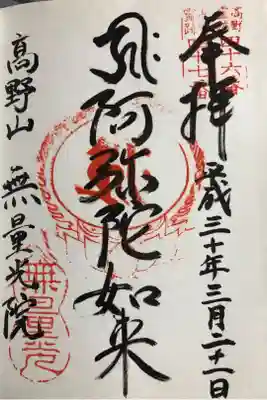 奉拝
平成三十年三月二十一日
阿弥陀如来
高野山 無量光院
無量光